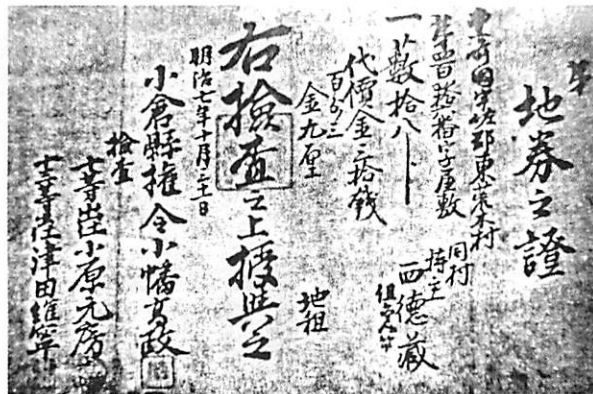 地券之證
豊前国宇佐郡東 木村
字屋敷
一藪拾八
同村
持主 西徳蔵
代價金三拾銭
百分ノ三
金九厘 地租
右検査之上授與之
明治七年十月三十一日
小倉縣権令小幡高政
検査
十等出仕小原元房
十三等出仕津田維寧